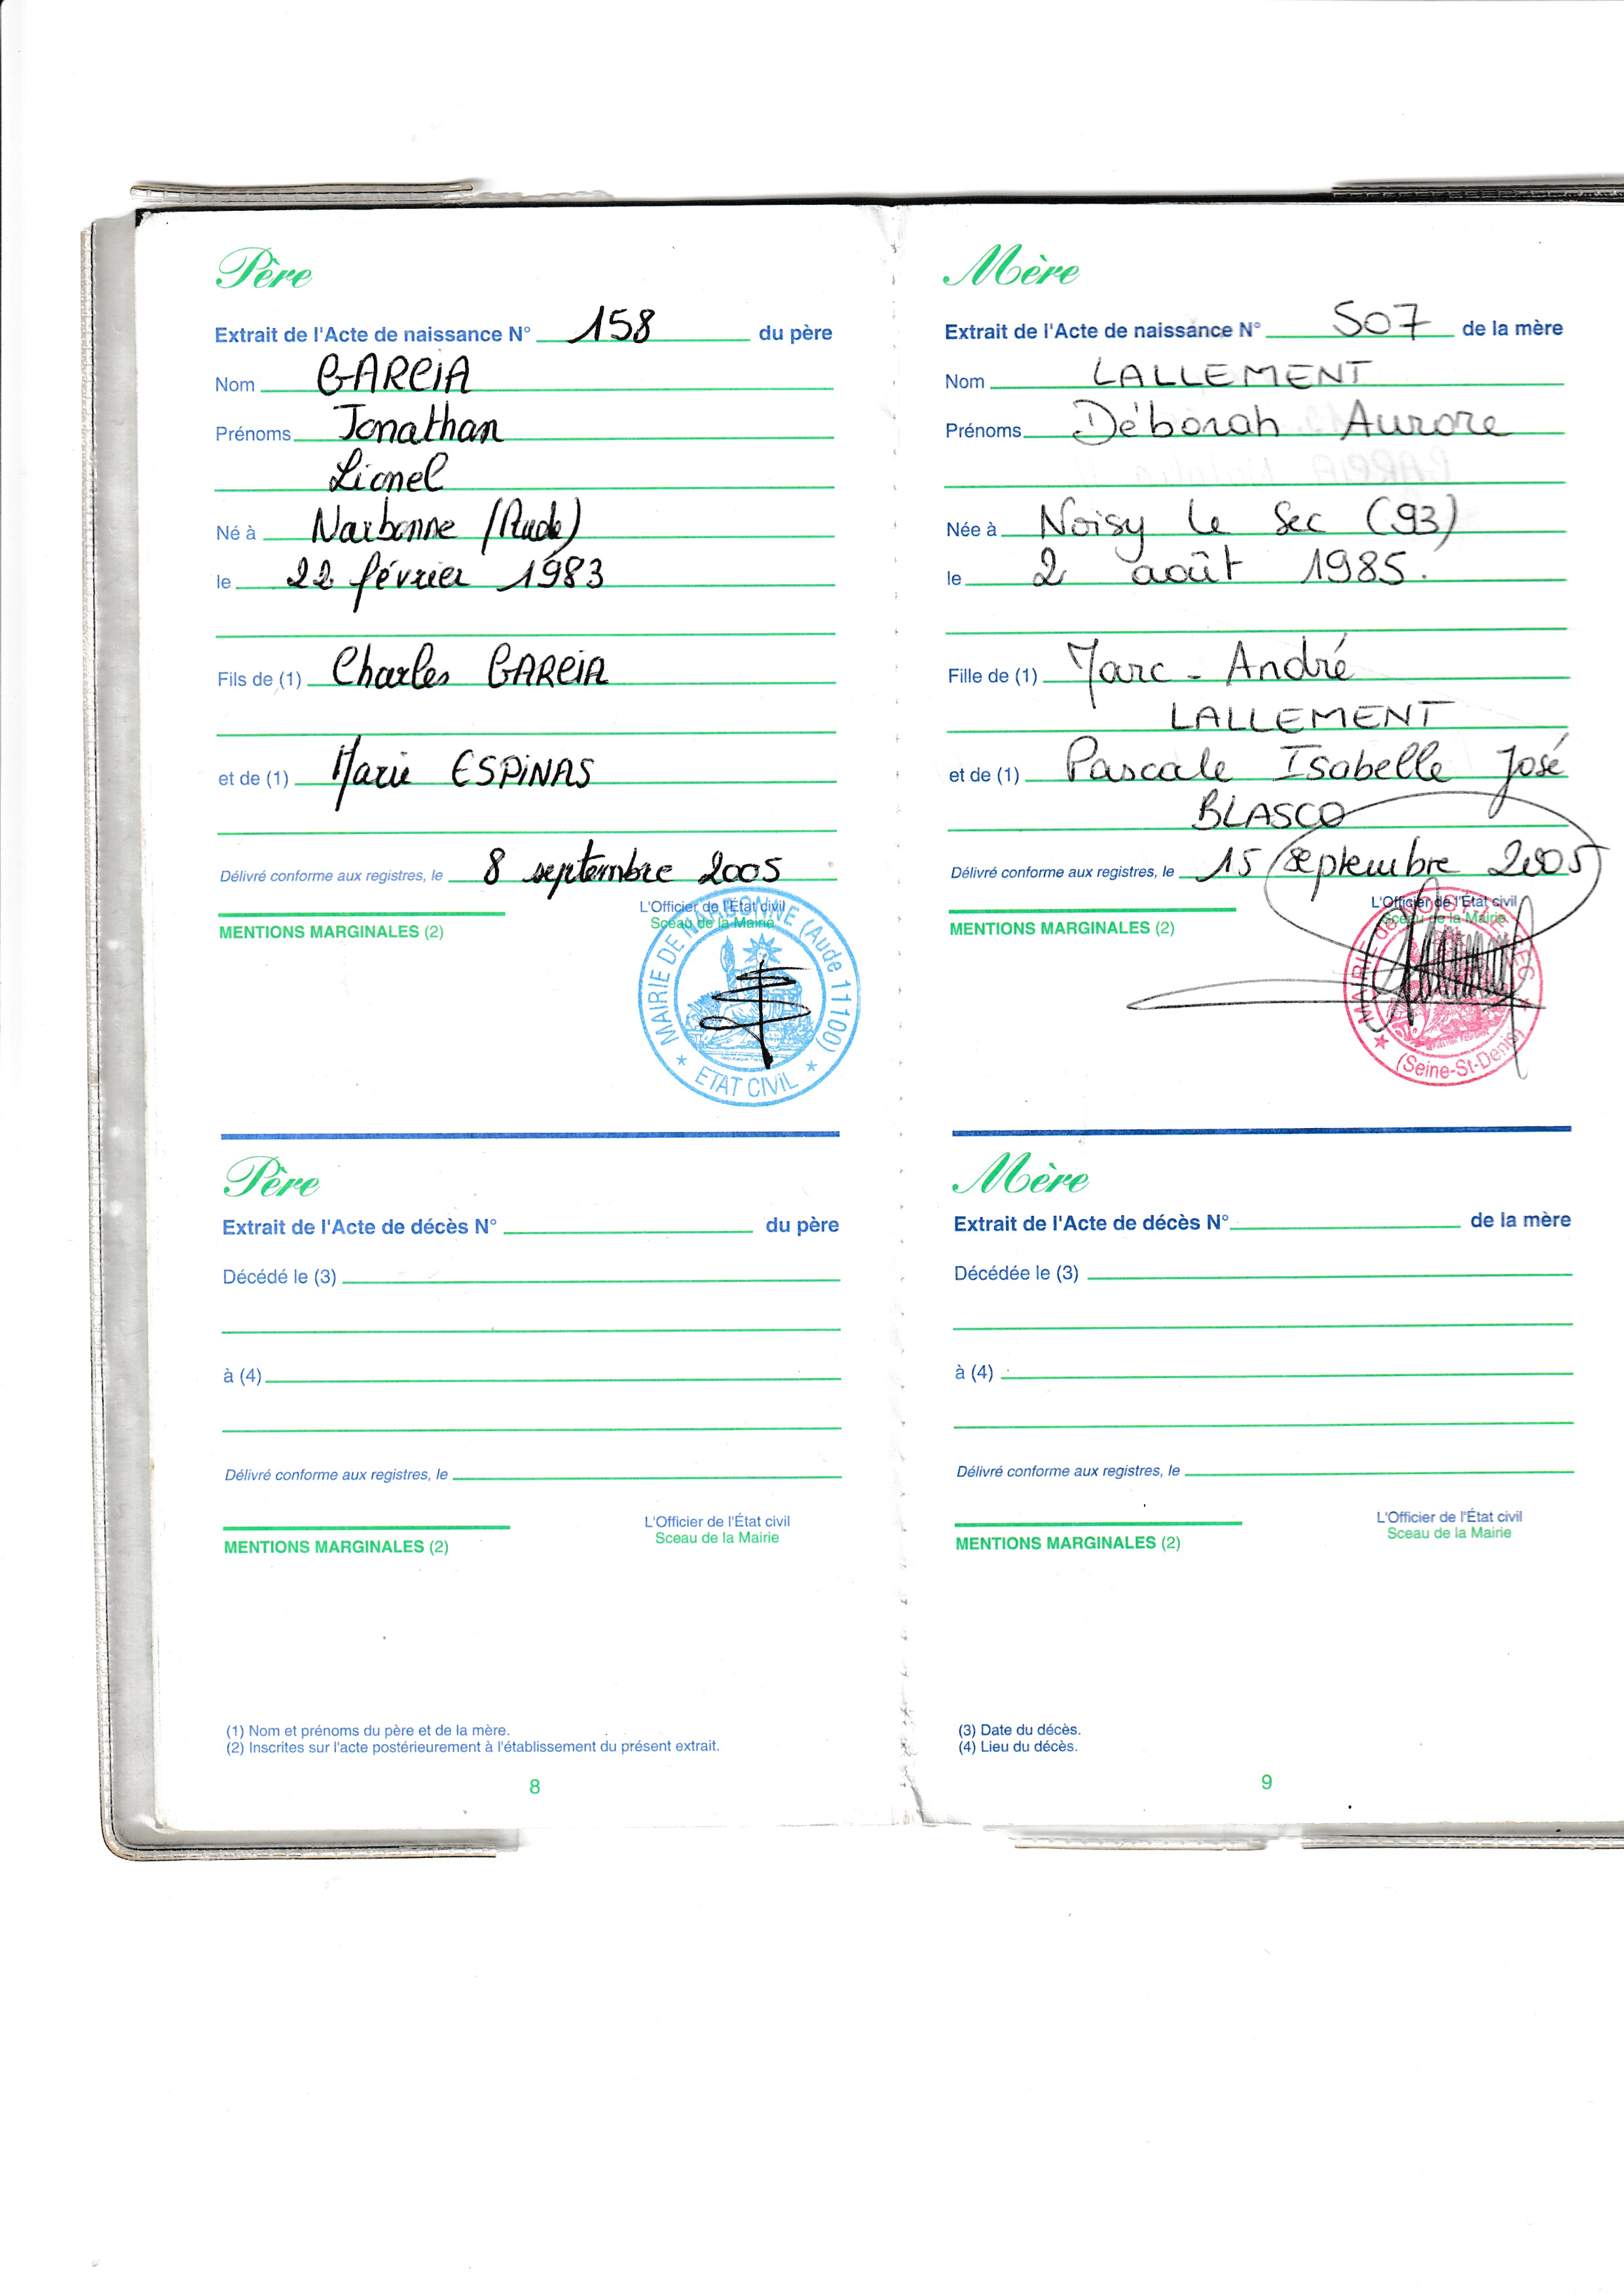 Père
Extrait de l'Acte de naissance N° 158 du père
Nom GARCiA
Prénoms Jonathan
Lionel
Né à Narbonne (Aude)
le 22 février 1983
Fils de (1) Charles GARCiA
et de (1) Marie ESPiNAS
Délivré conforme aux registres, le 8 septembre 2005
L'Officier de l'État civil
Sceau de la Mairie
MENTIONS MARGINALES (2)
MAIRIE DE NARBONNE (Aude 11100)
★ ETAT CIVIL ★
Père
Extrait de l'Acte de décès N° du père
Décédé le (3)
à (4)
Délivré conforme aux registres, le
L'Officier de l'État civil
Sceau de la Mairie
MENTIONS MARGINALES (2)
(1) Nom et prénoms du père et de la mère.
(2) Inscrites sur l'acte postérieurement à l'établissement du présent extrait.
8
Mère
Extrait de l'Acte de naissance N° 507 de la mère
Nom LALLEMENT
Prénoms Déborah Aurore
Née à Noisy le Sec (93)
le 2 août 1985.
Fille de (1) Marc - André
LALLEMENT
et de (1) Pascale Isabelle José
BLASCO
Délivré conforme aux registres, le 15 septembre 2005
L'Officier de l'État civil
Sceau de la Mairie
MENTIONS MARGINALES (2)
MAIRIE de NOISY LE SEC
★ (Seine-St-Denis)
Mère
Extrait de l'Acte de décès N° de la mère
Décédée le (3)
à (4)
Délivré conforme aux registres, le
L'Officier de l'État civil
Sceau de la Mairie
MENTIONS MARGINALES (2)
(3) Date du décès.
(4) Lieu du décès.
9